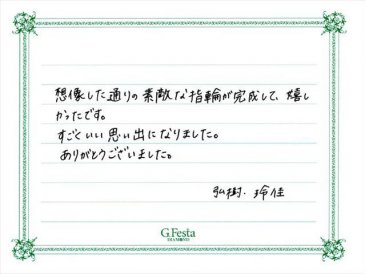 想像した通りの素敵な指輪が完成して、嬉し
かったです。
すごくいい思い出になりました。
ありがとうございました。
弘樹・玲佳
G.Festa
DIAMOND